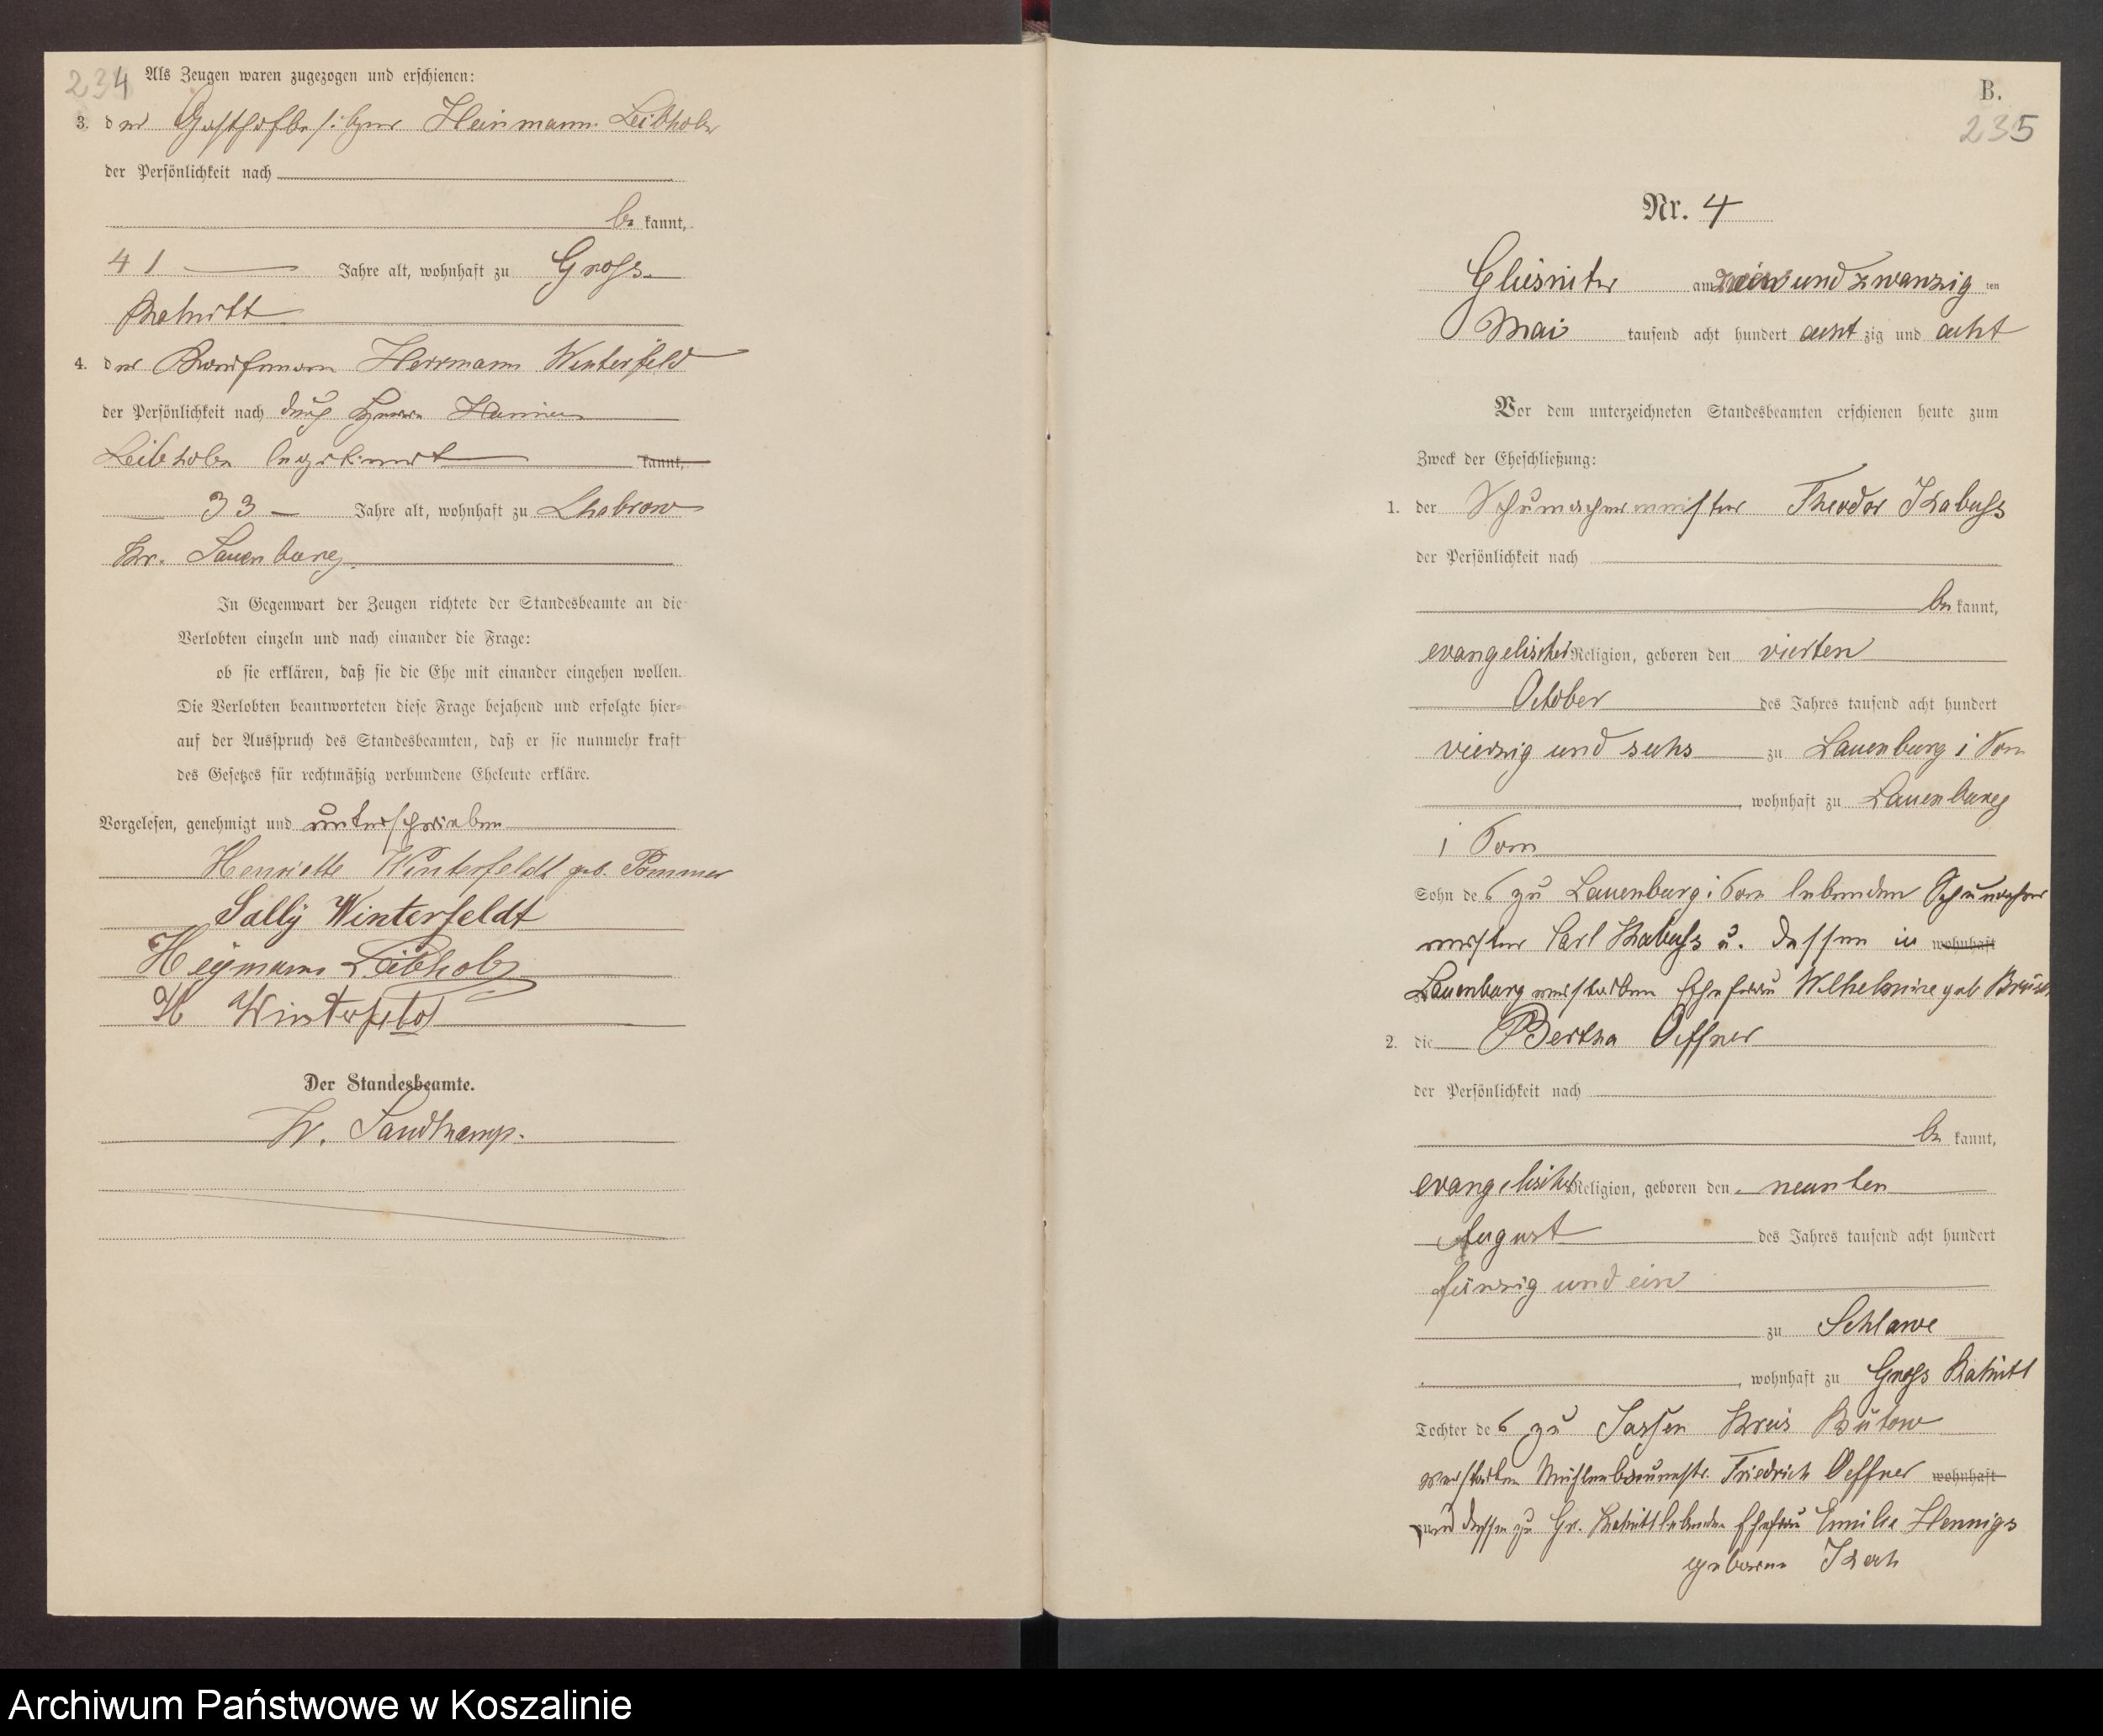 234
Als Zeugen waren zugezogen und erschienen:
3. der Gasthofbesitzer Heimann Leibholz
der Persönlichkeit nach
be kannt,
41 Jahre alt, wohnhaft zu Gross
4. der Kaufmann Herrmann Winterfeld
der Persönlichkeit nach durch Herrn
Leibholz kannt,
33 Jahre alt, wohnhaft zu Chobrow
Kr. Lauenburg.
In Gegenwart der Zeugen richtete der Standesbeamte an die
Verlobten einzeln und nach einander die Frage:
ob sie erklären, daß sie die Ehe mit einander eingehen wollen.
Die Verlobten beantworteten diese Frage bejahend und erfolgte hier-
auf der Ausspruch des Standesbeamten, daß er sie nunmehr kraft
des Gesetzes für rechtmäßig verbundene Eheleute erkläre.
Vorgelesen, genehmigt und unterschrieben
Henriette Winterfeldt geb. Pommer
Sally Winterfeldt
Heymann Leibholz
H Winterfeld
Der Standesbeamte.
Sandkamp.
B.
235
Nr. 4
am und zwanzig ten
Mai tausend acht hundert acht zig und acht
Vor dem unterzeichneten Standesbeamten erschienen heute zum
Zweck der Eheschließung:
1. der Schumachermeister Theodor Kabuss
der Persönlichkeit nach
be kannt,
evangelischer Religion, geboren den vierten
October des Jahres tausend acht hundert
vierzig und sechs zu Lauenburg i Pom
wohnhaft zu Lauenburg
i Pom
Sohn des zu Lauenburg i Pom lebenden Schumacher
meister Carl Kabuss u. dessen in wohnhaft
Lauenburg verstorben Ehefrau Wilhelmine geb
2. die Bertha Oeffner
der Persönlichkeit nach
be kannt,
evangelischer Religion, geboren den neunten
August des Jahres tausend acht hundert
fünzig und ein
zu Schlawe
wohnhaft zu Gross
Tochter des zu Jassen Kreis Bütow
verstorben Friedrich Oeffner wohnhaft
und dessen zu Gr. lebenden Ehefrau Emilie Hennigs
geborne
Archiwum Państwowe w Koszalinie